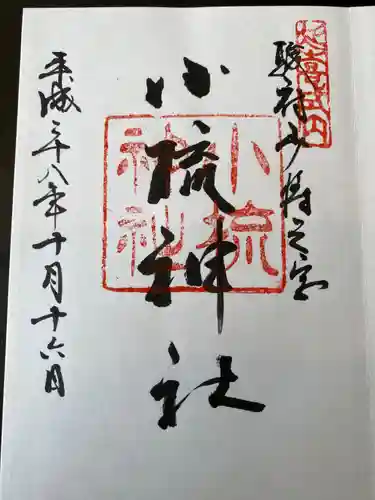 延喜式内
駿府山宮之宮
小梳神社
小梳神社
平成二十八年十月十六日